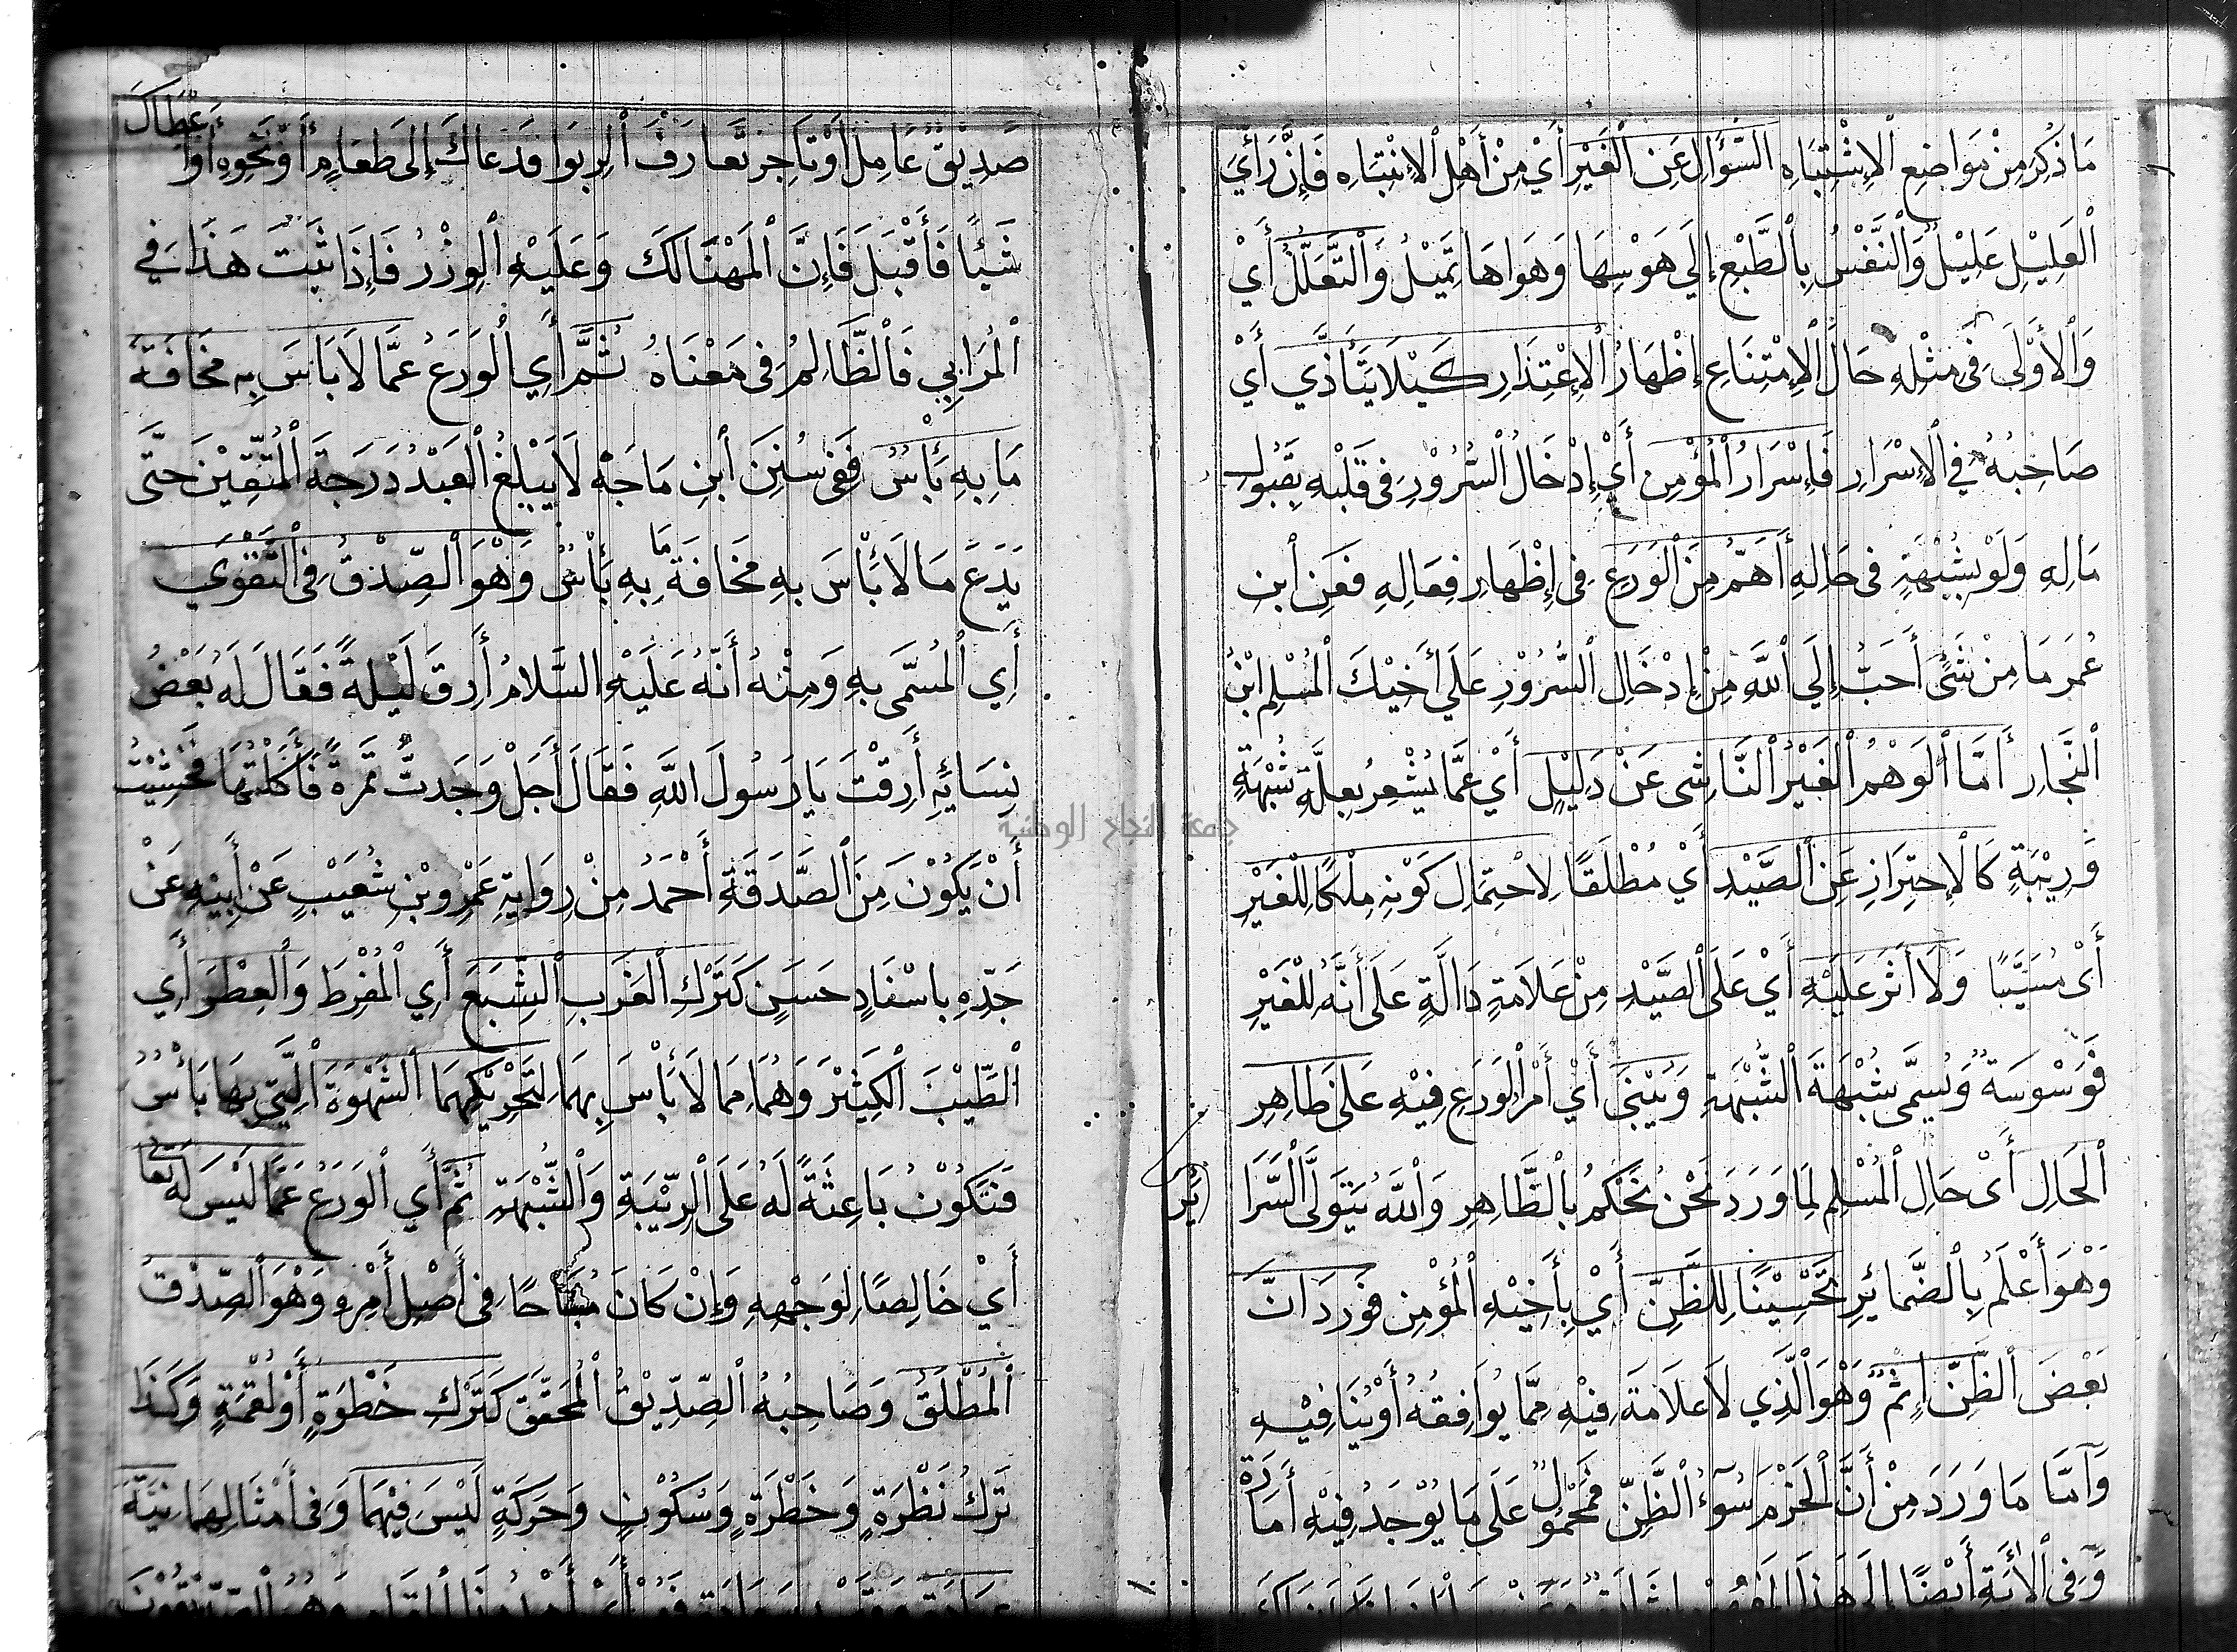 مَا ذُكِرَ مِنْ مَوَاضِعِ ٱلِاشْتِبَاهِ السُّؤَالُ عَنِ ٱلْغَيْرِ أَيْ مِنْ أَهْلِ ٱلِانْتِبَاهِ فَإِنَّ رَأْيَ
ٱلْعَلِيْلِ عَلِيْلٌ وَٱلنَّفْسُ بِٱلطَّبْعِ إِلَي هَوَسِهَا وَهَوَاهَا تَمِيْلُ وَٱلتَّعَلُّلُ أَيْ
وَٱلْأَوْلَى فِى مِثْلِهِ حَالَ ٱلِامْتِنَاعِ إِظْهَارُ ٱلِاعْتِذَارِ كَيْلَا يَتَأَذَّي أَيْ
صَاحِبُهُ فِي ٱلْإِسْرَارِ فَإِسْرَارُ ٱلْمُؤْمِنِ أَيْ إِدْخَالُ ٱلسُّرُوْرِ فِى قَلْبِهِ بِقَبُولِ
مَالِهِ وَلَوْ بِشُبْهَةٍ فِى حَالِهِ أَهَمُّ مِنَ ٱلْوَرَعِ فِى إِظْهَارِ فِعَالِهِ فَعَنِ ٱبْنِ
عُمَرَ مَا مِنْ شَئٍ أَحَبُّ إِلَي ٱللَّهِ مِنْ إِدْخَالِ ٱلسُّرُوْرِ عَلَي أَخِيْكَ ٱلْمُسْلِمِ ابْنُ
ٱلنَّجَارِ أَمَّا ٱلْوَهْمُ ٱلْغَيْرُ ٱلنَّاشِى عَنْ دَلِيْلٍ أَيْ عَمَّا يُشْعِرُ بِعِلَّةِ شُبْهَةٍ
وَرِيْبَةٍ كَالْاِحْتِرَازِ عَنِ ٱلصَّيْدِ أَيْ مُطْلَقًا لِاحْتِمَالِ كَوْنِهِ مِلْكًا لِلْغَيْرِ
أَىْ مُسَيَّبًا وَلَا أَثَرَ عَلَيْهِ أَيْ عَلَى ٱلصَّيْدِ مِنْ عَلَامَةٍ دَالَّةٍ عَلَى أَنَّهُ لِلْغَيْرِ
فَوَسْوَسَةٌ وَيُسَمَّى شُبْهَةَ ٱلشُّبْهَةِ وَيُبْنَى أَيْ أَمْرُ ٱلْوَرَعِ فِيْهِ عَلَى ظَاهِرِ
ٱلْحَالِ أَىْ حَالِ ٱلْمُسْلِمِ لِمَا وَرَدَ نَحْنُ نَحْكُمُ بِٱلظَّاهِرِ وَٱللَّهُ يَتَوَلَّى ٱلسَّرَا
ئِرَ
وَهْوَ أَعْلَمُ بِٱلضَّمَائِرِ تَحْسِيْنًا لِلظَّنِّ أَيْ بِأَخِيْهِ ٱلْمُؤْمِنِ فَوَرَدَ انَّ
بَعْضَ ٱلظَّنِّ إِثْمٌ وَهْوَ ٱلَّذِي لَا عَلَامَةَ فِيْهِ مِمَّا يُوَافِقُهُ أَوْ يُنَافِيْهِ
وَأَمَّا مَا وَرَدَ مِنْ أَنَّ ٱلْحَزْمَ سُوٓءُ ٱلظَّنِّ فَمَحْمُوْلٌ عَلَى مَا يُوْجَدُ فِيْهِ أَمَارَةٌ
وَفِى ٱلْآيَةِ أَيْضًا إِلَى هَذَا
صَدِيْقٌ عَامِلٌ أَوْ تَاجِرٌ تَعَارَفَ ٱلرِّبَوا فَدَعَاكَ إِلَى طَعَامٍ أَوْ نَحْوِهِ أَوْ أَعْطَاكَ
شَيْئًا فَأَقْبَلَ فَإِنَّ ٱلْمَهْنَا لَكَ وَعَلَيْهِ ٱلْوِزْرُ فَإِذَا ثَبَتَ هَذَا فِي
ٱلْمُرَابِي فَٱلظَّالِمُ فِى مَعْنَاهُ ثُمَّ أَيِ ٱلْوَرَعُ عَمَّا لَا بَاسَ بِهِ مَخَافَةَ
مَا بِهِ بَأْسٌ فَفِى سُنَنِ ٱبْنِ مَاجَهْ لَا يَبْلُغُ ٱلْعَبْدُ دَرَجَةَ ٱلْمُتَّقِيْنَ حَتَّى
يَدَعَ مَا لَا بَأْسَ بِهِ مَخَافَةَ مَا بِهِ بَأْسٌ وَهْوَ ٱلصِّدْقُ فِى ٱلتَّقْوَي
أَيِ ٱلْمُسَمَّى بِهِ وَمِنْهُ أَنَّهُ عَلَيْهِ السَّلَامُ أَرِقَ لَيْلَةً فَقَالَ لَهُ بَعْضُ
نِسَائِهِ أَرِقْتَ يَا رَسُولَ اللَّهِ فَقَالَ أَجَلْ وَجَدتُّ تَمْرَةً فَأَكَلْتُهَا فَخَشِيْتُ
أَنْ يَكُوْنَ مِنَ ٱلصَّدَقَةِ أَحْمَدُ مِنْ رِوَايَةِ عَمْرِو بْنِ شُعَيْبٍ عَنْ أَبِيْهِ عَنْ
جَدِّهِ بِاسْنَادٍ حَسَنٍ كَتَرْكِ ٱلْعَزَبِ ٱلشِّبَعَ أَيِ ٱلْمُفْرِطَ وَٱلْعِطْرَ أَيِ
ٱلطِّيْبَ ٱلْكَثِيْرَ وَهُمَا مِمَا لَا بَأْسَ بِهِمَا لِتَحْرِيْكِهِمَا ٱلشَّهْوَةَ ٱلَّتِي بِهَا بَأْسٌ
فَتَكُوْنُ بَاعِثَةً لَهُ عَلَى ٱلرِّيْبَةِ وَٱلشُّبْهَةِ ثُمَّ أَيِ ٱلْوَرَعُ عَمَّا لَيْسَ لَهُ تَعَالَى
أَيْ خَالِصًا لِوَجْهِهِ وَإِنْ كَانَ مُبَاحًا فِى أَصْلِ أَمْرِهِ وَهْوَ ٱلصِّدْقُ
ٱلْمُطْلَقُ وَصَاحِبُهُ ٱلصِّدِّيْقُ ٱلْمُحَقَّقُ كَتَرْكِ خَطْوَةٍ أَوْ لُقْمَةٍ وَكَذَا
تَرْكُ نَظْرَةٍ وَخَطْرَةٍ وَسُكُوْنٍ وَحَرَكَةٍ لَيْسَ فِيْهِمَا وَفِى أَمْثَالِهِمَا نِيَّةَ
جامعة النجاح الوطنية